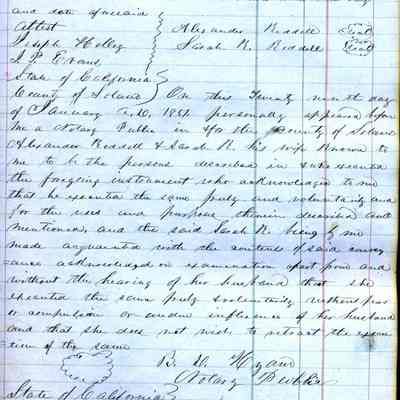 and date aforesaid
Attest Alexander Riddell Seal
Joseph Holley Sarah R. Riddell Seal
J. P. Evans
State of California
County of Solano On this Twenty ninth day
of January A.D. 1854 personally appeared before
me a Notary Public in & for the County of Solano
Alexander Riddell & Sarah R. his wife known to
me to be the persons described in & who executed
the foregoing instrument who acknowledged to me
that he executed the same freely and voluntarily and
for the uses and purposes therein described and
mentioned, and the said Sarah R. being by me
made acquainted with the contents of said convey
ance acknowledged on examination apart from and
without the hearing of her husband that she
executed the same freely & voluntarily without fear
or compulsion or undue influence of her husband
and that she does not wish to retract the execu
tion of the same
B. D. Hyam
Notary Public
State of California